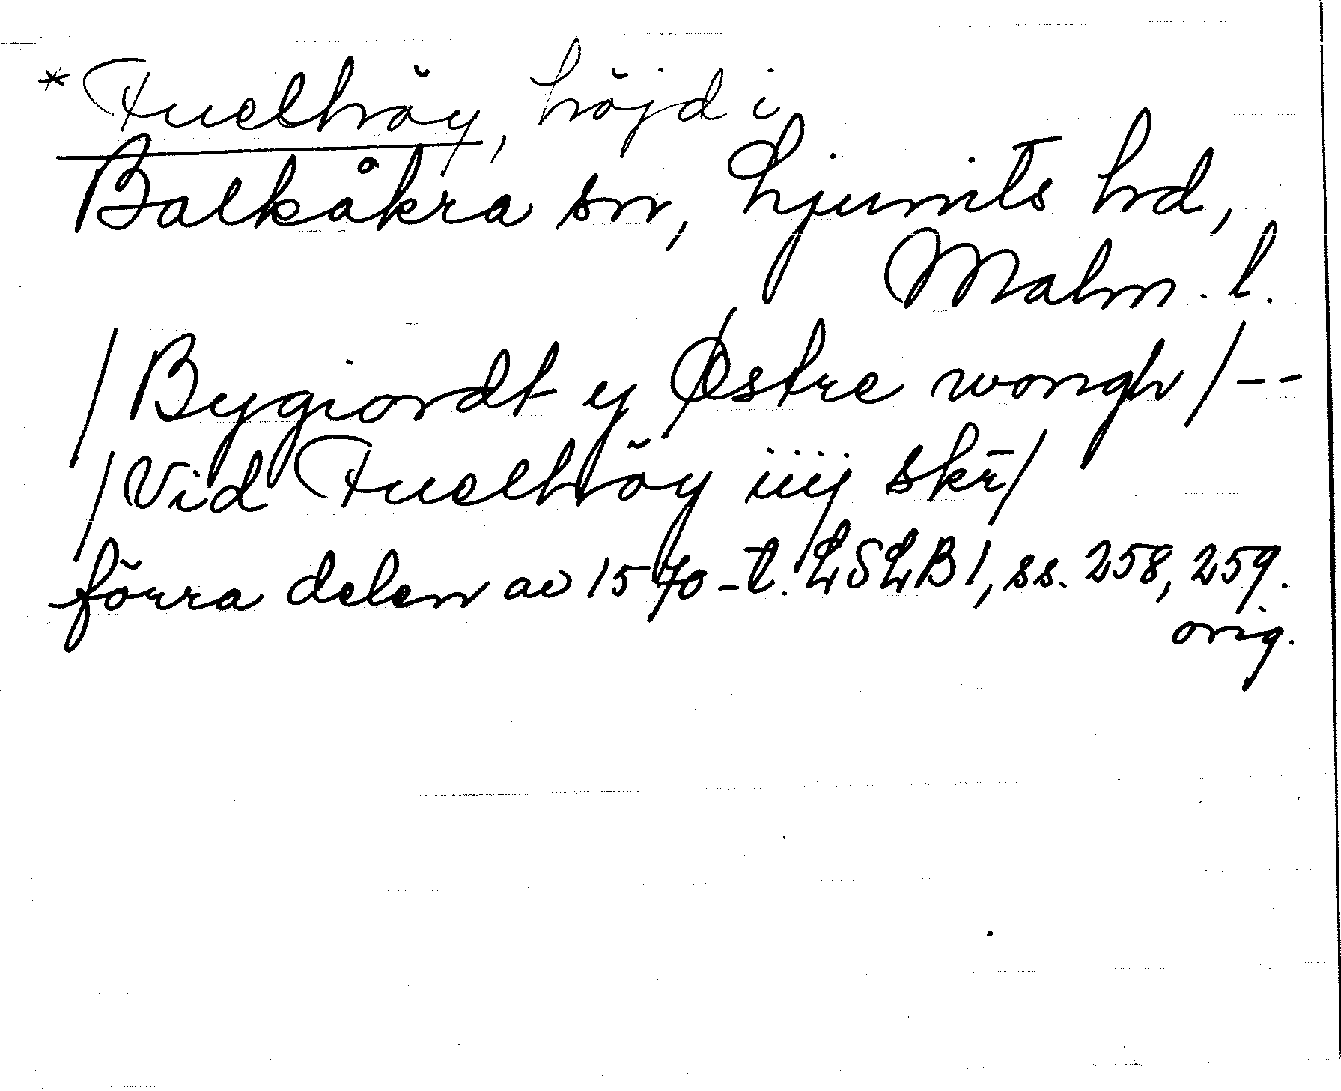 *Fuelhöy, höjd i
Balkåkra sn, Ljunits hd,
Malm. l.
/Bygiordt y Østre wongh/--
/Vid Fuelhöy iiij skr̄/
förra delen av 1570-t. LSLB 1, ss. 258, 259.
orig.